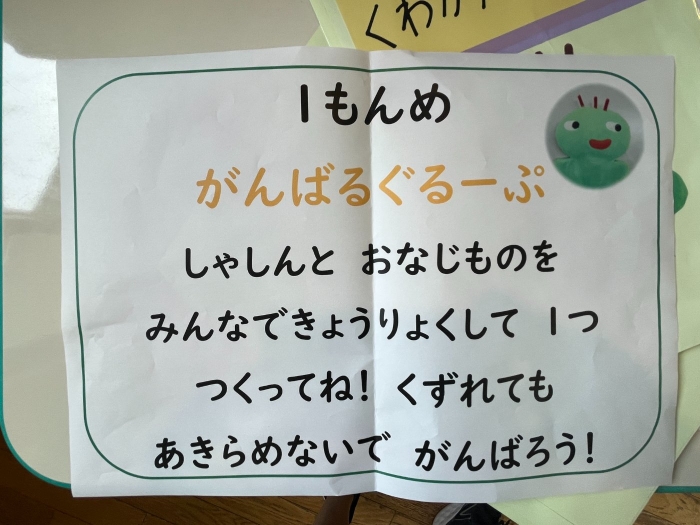 くわが
1もんめ
がんばるぐるーぷ
しゃしんと おなじものを
みんなできょうりょくして 1つ
つくってね! くずれても
あきらめないで がんばろう!